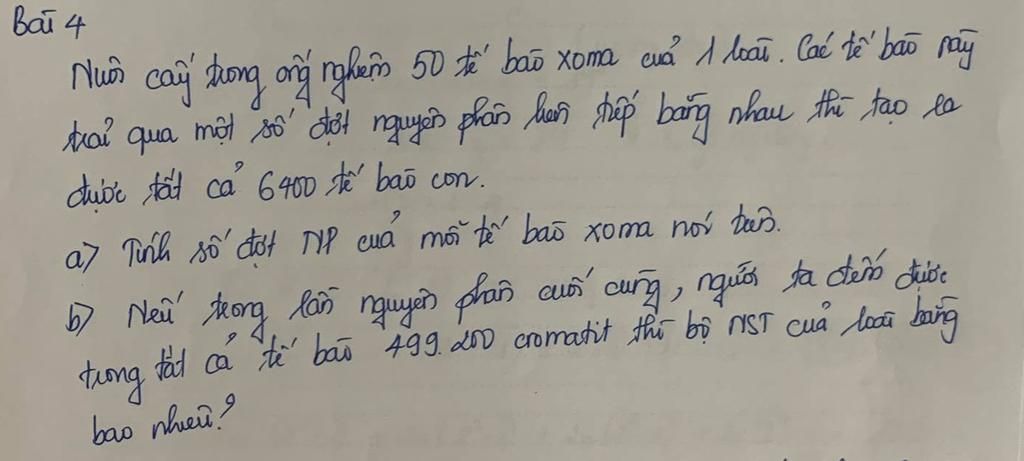 Bài 4
Nuôi cấy trong ống nghiệm 50 tế bào xoma của 1 loài. Các tế bào này
trải qua một số đợt nguyên phân liên tiếp bằng nhau thì tạo ra
được tất cả 6400 tế bào con.
a) Tính số đợt NP của mỗi tế bào xoma nói trên.
b) Nếu trong lần nguyên phân cuối cùng, người ta đếm được
trong tất cả tế bào 499.200 cromatit thì bộ NST của loài bằng
bao nhiêu?